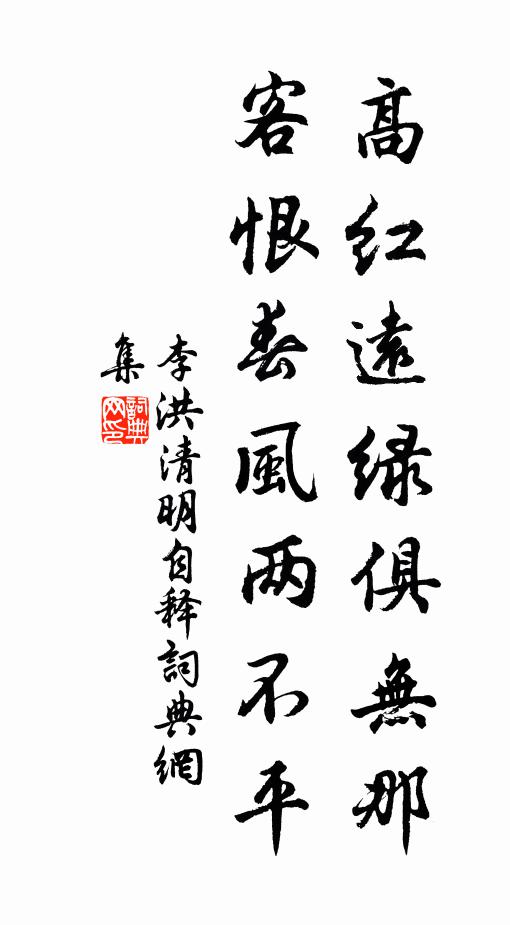 高紅遠緑俱無那
客恨春風两不平
李洪清明自释詞典網
集
詞典
网印